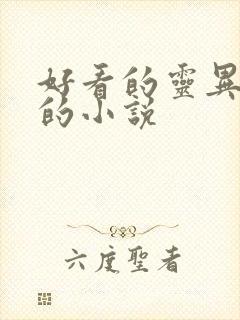 好看的靈異
的小説
六度聖者